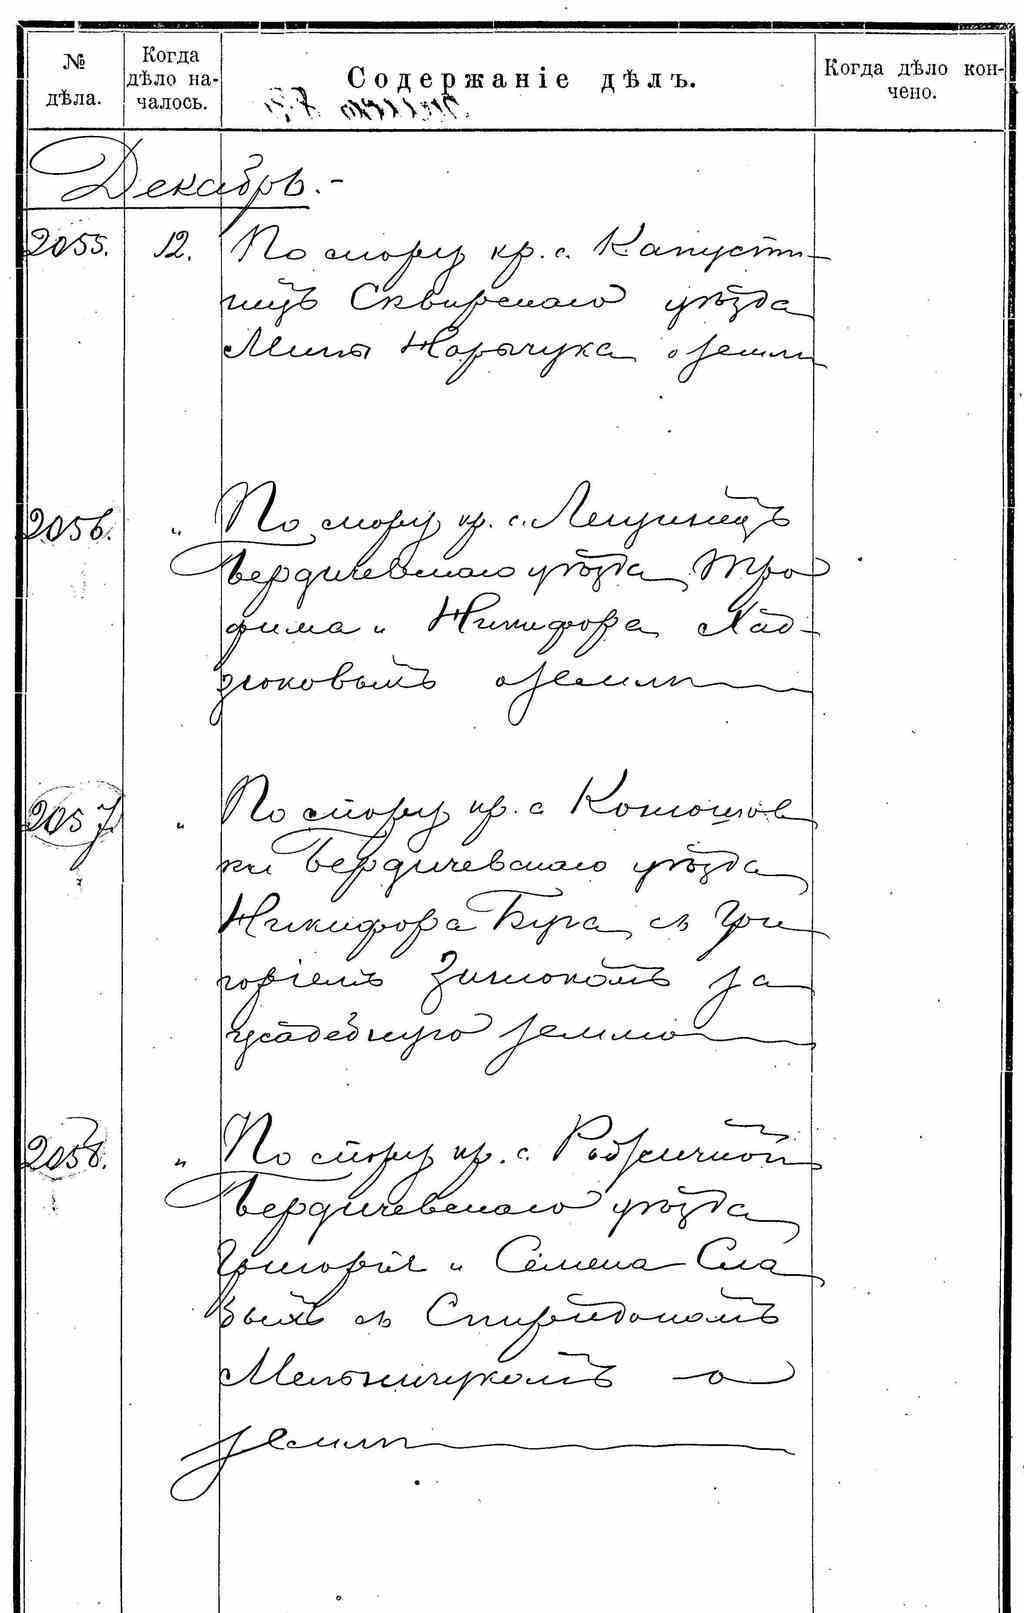 № дѣла.
Когда дѣло на-чалось.
Содержаніе дѣлъ.
Когда дѣло кон-чено.
Декабрь.-
2055. 12. По спору кр. с. Капусти-
нецъ Сквирскаго уѣзда
о земли
2056. „ По спору кр. с. Лещинецъ
Бердичевскаго уѣзда Тро
фима и Никифора
о земли
2057. „ По спору кр. с Конюшов
ки Бердичевскаго уѣзда
Никифора Буга съ Гри
горіемъ за
усадебную землю
2058. „ По спору кр. с.
Бердичевскаго уѣзда
Григорія и Семена Сла
быхъ съ Спиридономъ
Мельничукомъ о
земли